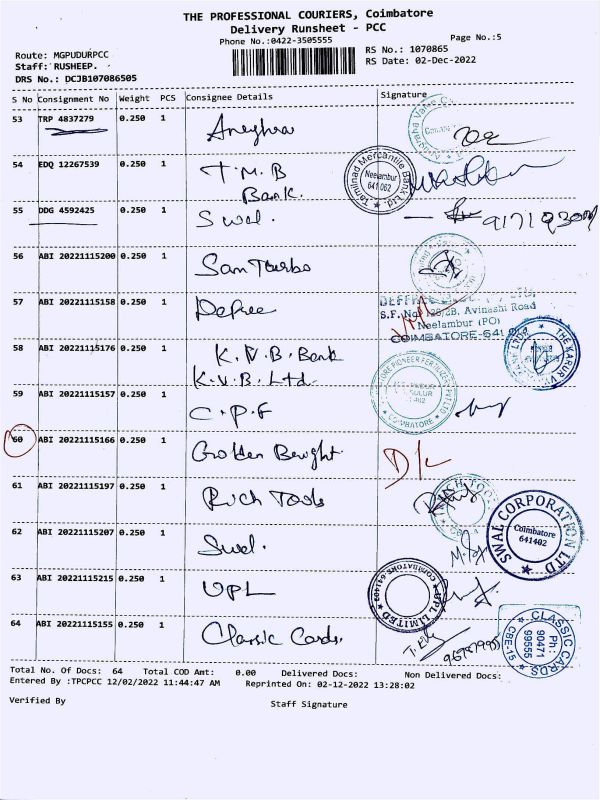 THE PROFESSIONAL COURIERS, Coimbatore
Delivery Runsheet - PCC
Phone No.:0422-3505555
Page No.:5
Route: MGPUDURPCC
Staff: RUSHEEP.
DRS No.: DCJB107086505
RS No.: 1070865
RS Date: 02-Dec-2022
S No Consignment No Weight PCS Consignee Details Signature
53 TRP 4837279 0.250 1
54 EDQ 12267539 0.250 1 T.M.B
Bank.
Tamilnad Mercantile Bank Ltd.
Neelambur
641 062
55 DDG 4592425 0.250 1 Swal.
56 ABI 20221115200 0.250 1 Sam Turbo
57 ABI 20221115158 0.250 1
S.F. No. 125/3B, Avinashi Road
Neelambur (PO)
58 ABI 20221115176 0.250 1 K.V.B. Bank
K.V.B. Ltd.
THE KARUR
59 ABI 20221115157 0.250 1 C.P.F
COIMBATORE
60 ABI 20221115166 0.250 1 Golden
61 ABI 20221115197 0.250 1 Rich Tools
62 ABI 20221115207 0.250 1 Swal.
SWAL CORPORATION LTD
Coimbatore
641402
63 ABI 20221115215 0.250 1 UPL
UPL LIMITED
64 ABI 20221115155 0.250 1 Classic Cards.
CLASSIC CARDS
CBE-15
Ph:
90471
99555
Total No. Of Docs: 64 Total COD Amt: 0.00 Delivered Docs: Non Delivered Docs:
Entered By :TPCPCC 12/02/2022 11:44:47 AM Reprinted On: 02-12-2022 13:28:02
Verified By
Staff Signature